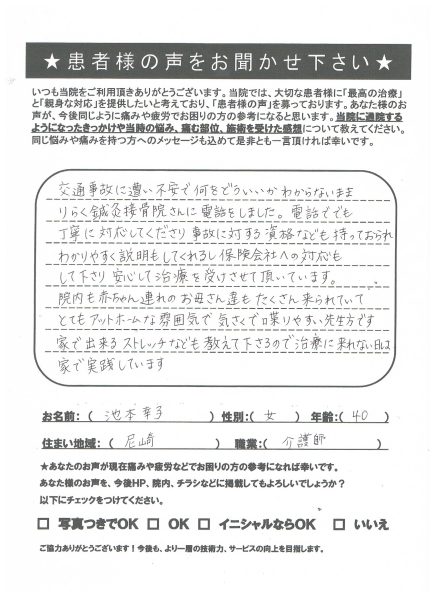 ★患者様の声をお聞かせ下さい★
いつも当院をご利用頂きありがとうございます。当院では、大切な患者様に「最高の治療」
と「親身な対応」を提供したいと考えており、「患者様の声」を募っております。あなた様のお
声が、今後同じように痛みや疲労でお困りの方の参考になると思います。当院に通院する
ようになったきっかけや当時の悩み、痛む部位、施術を受けた感想について教えてください。
同じ悩みや痛みを持つ方へのメッセージも込めて是非とも一言頂ければ幸いです。
交通事故に遭い不安で何をどういいかわからないまま
りらく鍼灸接骨院さんに電話をしました。電話ででも
丁寧に対応してくださり事故に対する資格なども持っておられ
わかりやすく説明もしてくれるし保険会社への対応も
して下さり安心して治療を受けさせて頂いています。
院内も赤ちゃん連れのお母さん達もたくさん来られていて
とてもアットホームな雰囲気で気さくで喋りやすい先生方です
家で出来るストレッチなども教えて下さるので治療に来れない日は
家で実践しています
お名前:( 池本幸子 ) 性別:( 女 ) 年齢:( 40 )
住まい地域:( 尼崎 ) 職業:( 介護師 )
★あなたのお声が現在痛みや疲労などでお困りの方の参考になれば幸いです。
あなた様のお声を、今後HP、院内、チラシなどに掲載してもよろしいでしょうか?
以下にチェックをつけてください。
□ 写真つきでOK □ OK □ イニシャルならOK □ いいえ
ご協力ありがとうございます!今後も、より一層の技術力、サービスの向上を目指します。